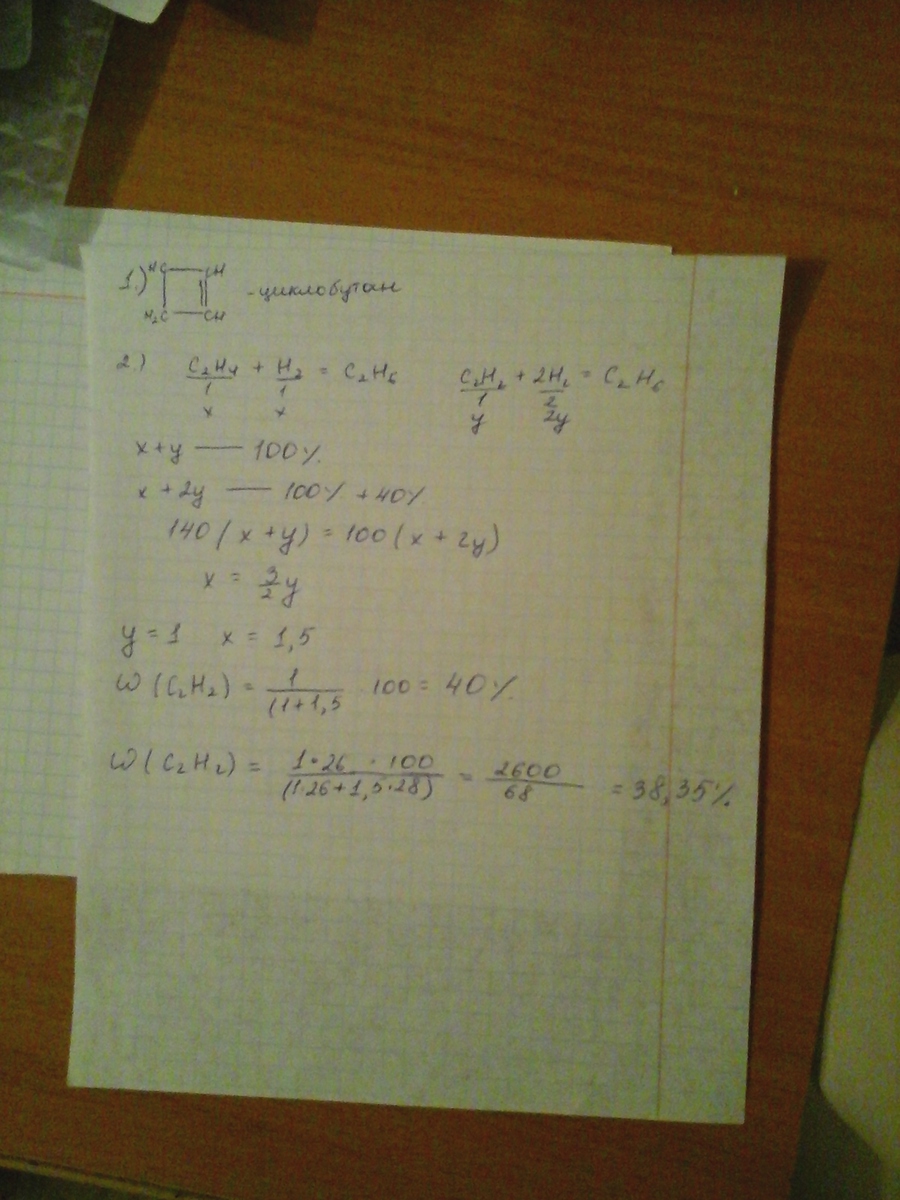 1.) HC CH
H₂C CH - циклобутан
2.) C₂H₄ + H₂ = C₂H₆ C₂H₂ + 2H₂ = C₂H₆
1 1 1 2
x x y 2y
x+y — 100%
x + 2y — 100% + 40%
140 (x + y) = 100 (x + 2y)
x = 3/2 y
y = 1 x = 1,5
ω (C₂H₂) = 1/(1+1,5 · 100 = 40%
ω (C₂H₂) = 1·26 · 100/(1·26+1,5·28) = 2600/68 = 38,35%